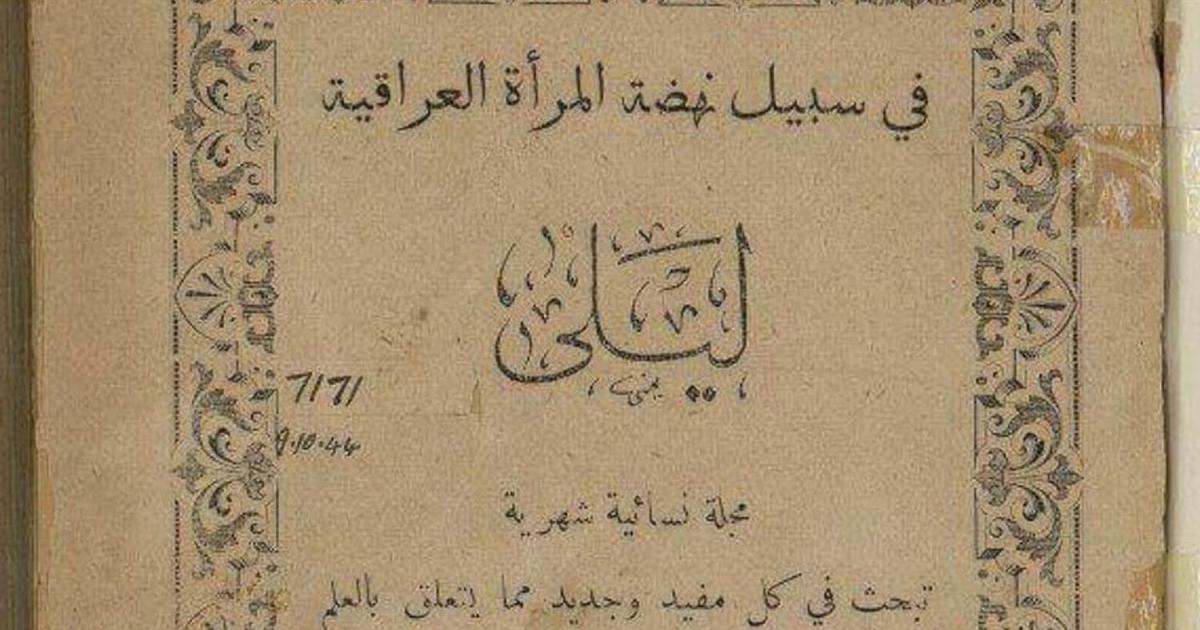 في سبيل نهضة المرأة العراقية
ليلى
7171
9.10.44
مجلة نسائية شهرية
تبحث في كل مفيد وجديد مما يتعلق بالعلم